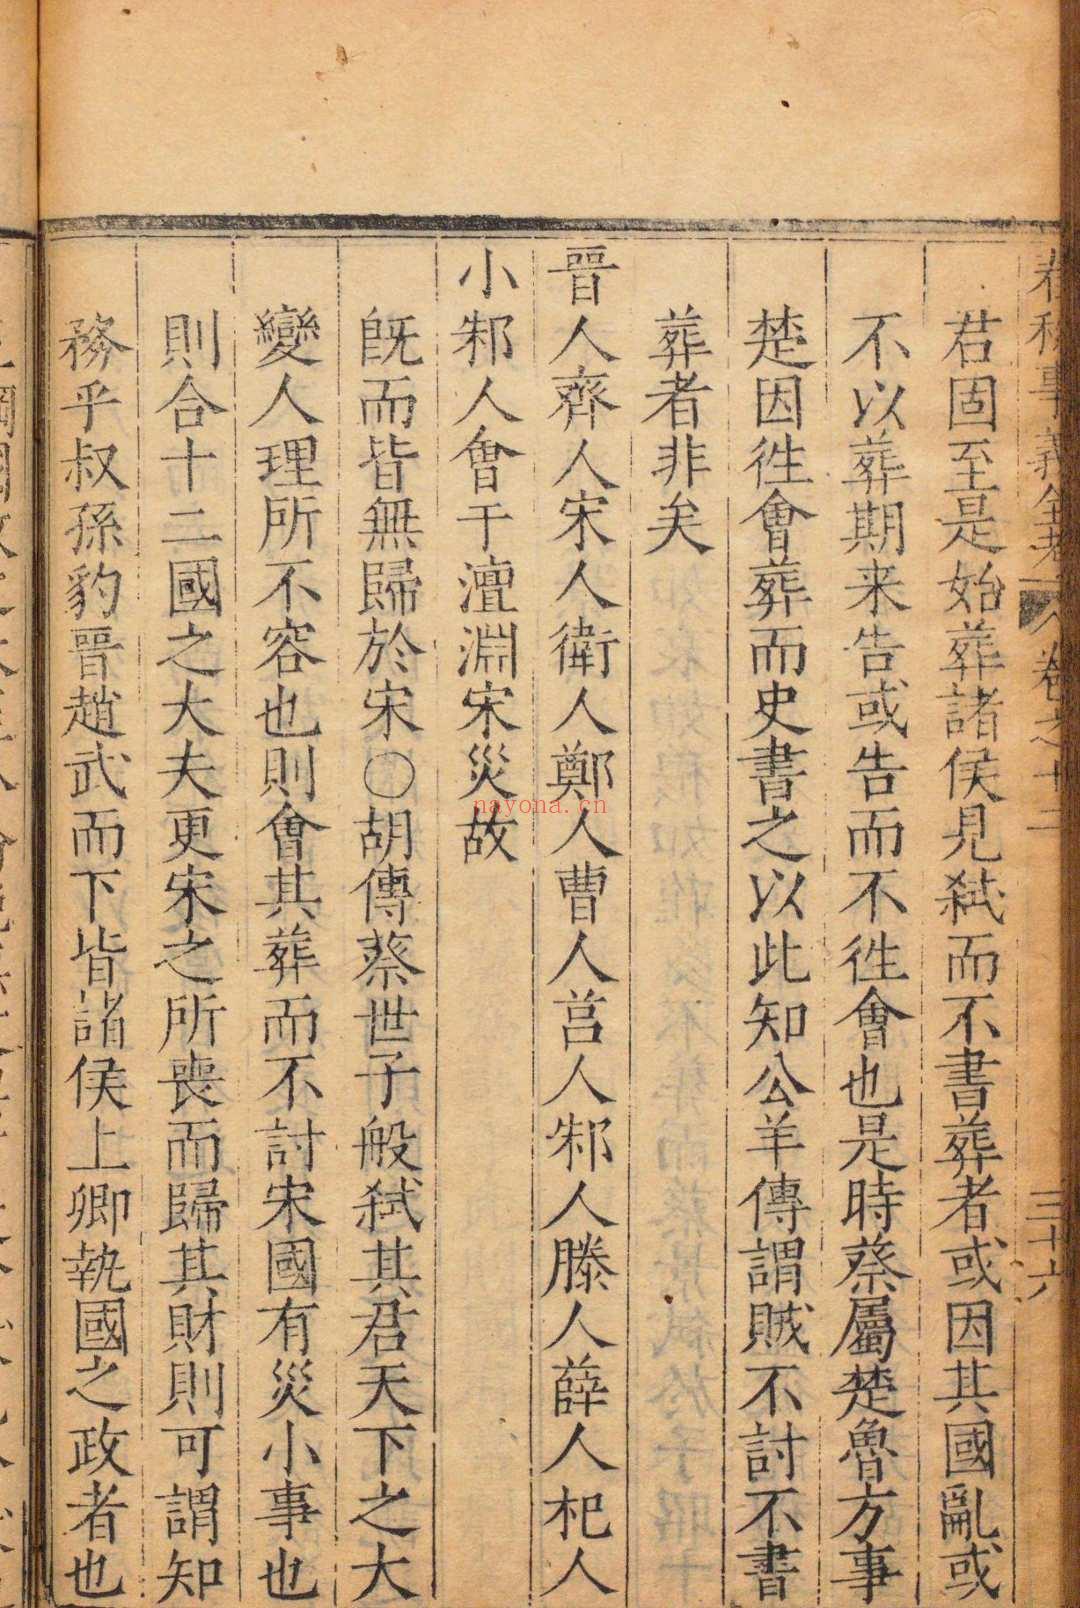 春秋事義全考 卷之十二 三十六
君固至是始葬諸侯見弑而不書葬者或因其國亂或
不以葬期来告或告而不徃會也是時蔡屬楚魯方事
楚因徃會葬而史書之以此知公羊傳謂賊不討不書
葬者非矣
晉人齊人宋人衛人鄭人曹人莒人邾人滕人薛人杞人
小邾人會于澶淵宋災故
旣而皆無歸於宋○胡傳蔡世子般弑其君天下之大
變人理所不容也則會其葬而不討宋國有災小事也
則合十二國之大夫更宋之所喪而歸其財則可謂知
務乎叔孫豹晉趙武而下皆諸侯上卿執國之政者也
nayona.cn